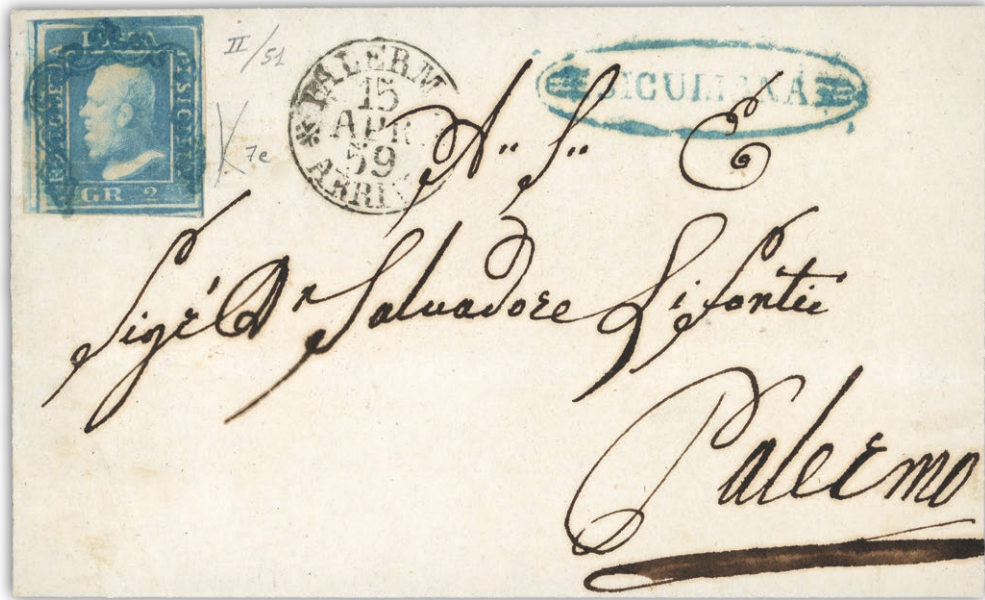 BOLLO DELLA POSTA DI SICILIA
GR. 2
II/51
7e
PALERMO
15
APR
59
ARRIVO
SICULIANA
A" S" E
Sigr Dn Salvadore
Palermo